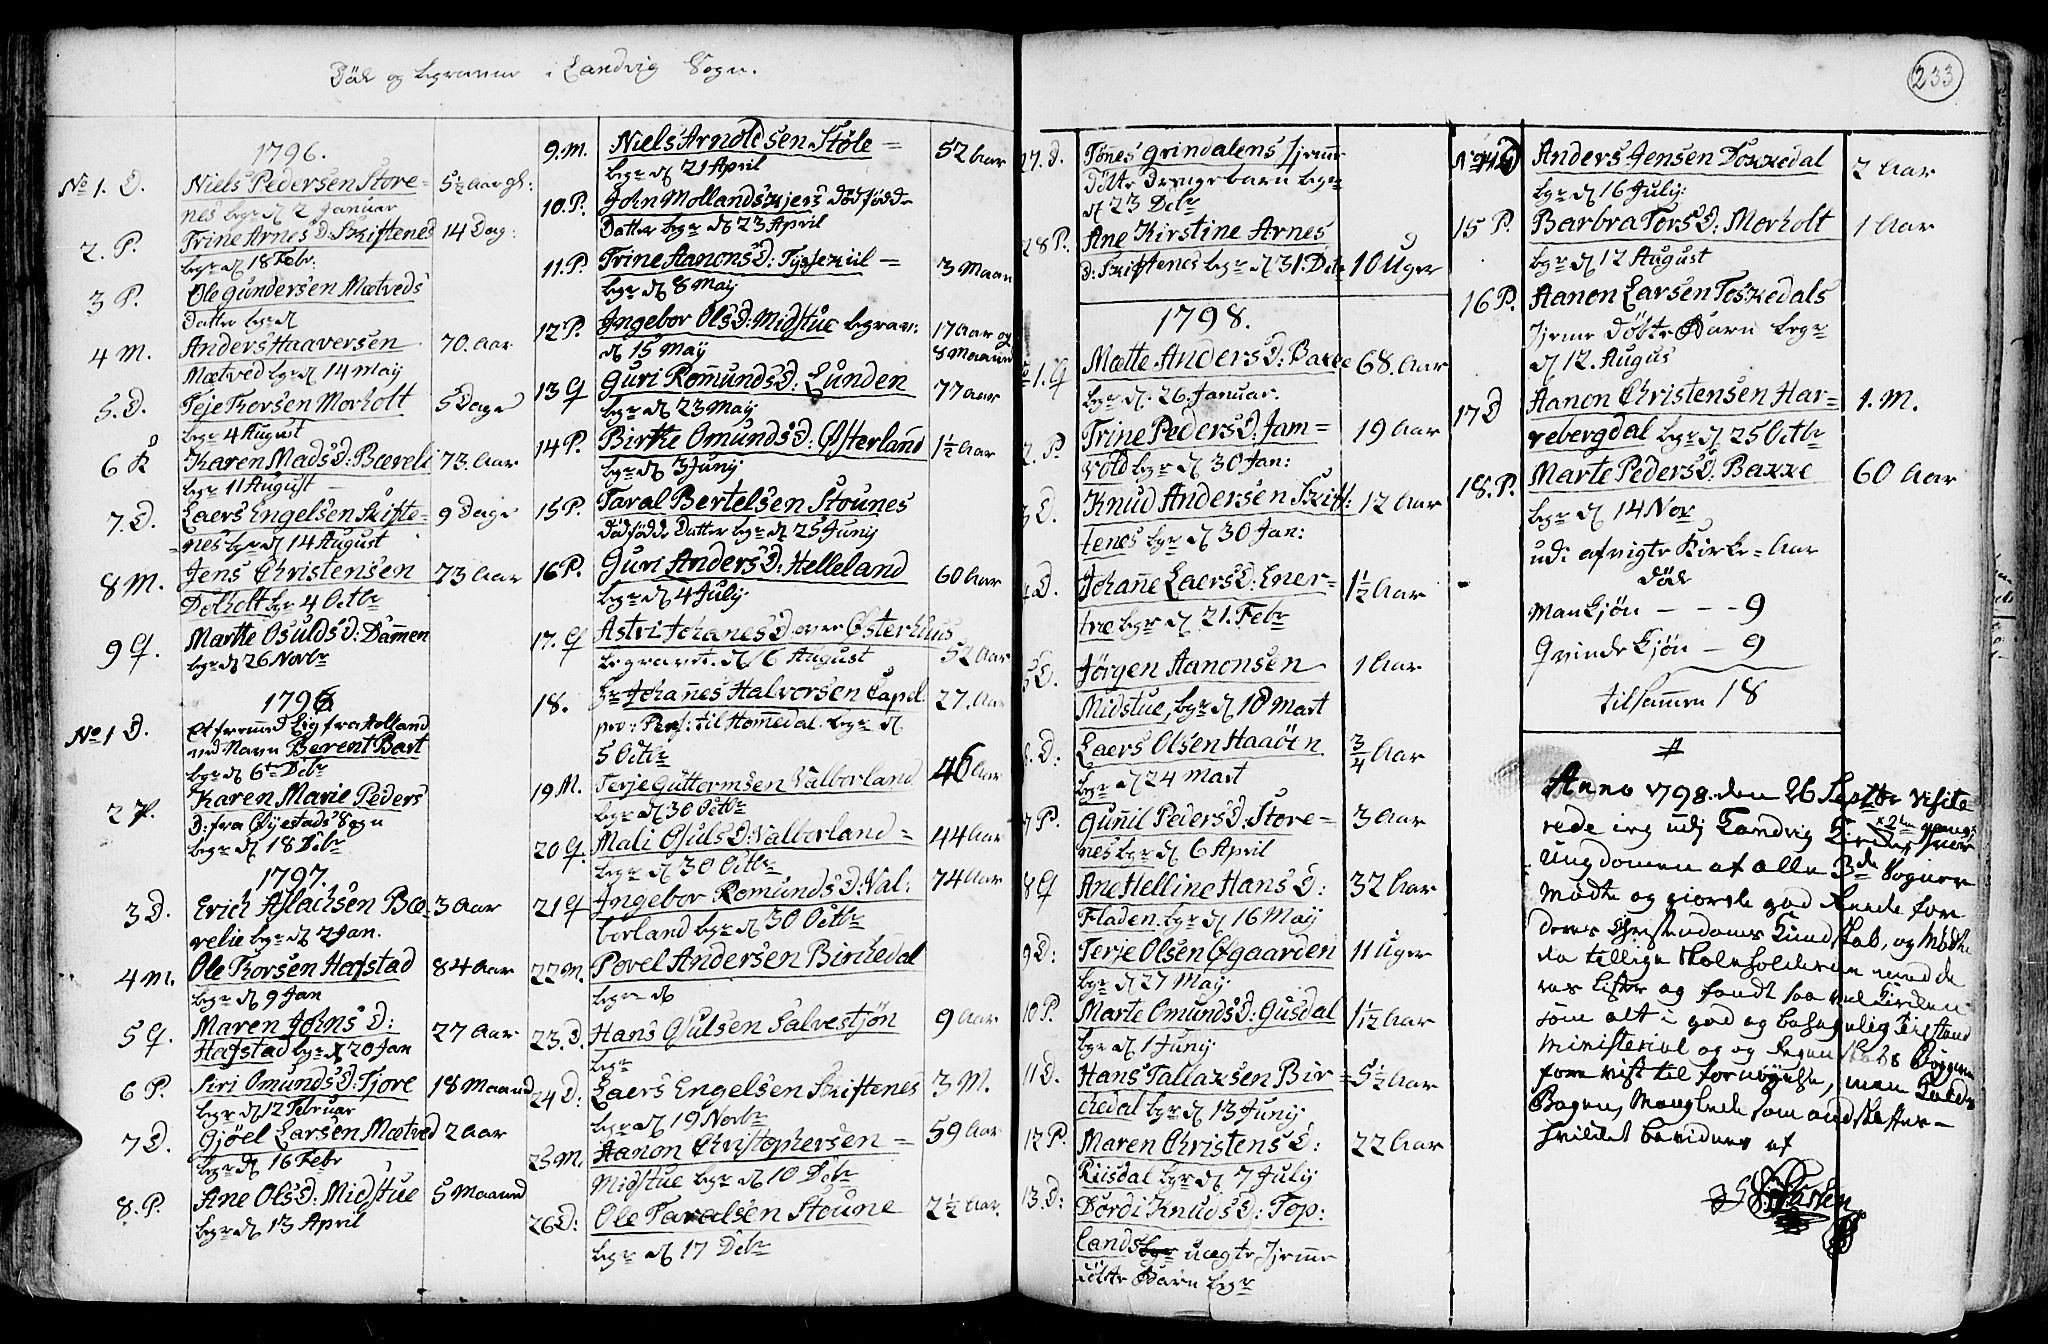 Död og begravne i Landvig Sogn.
233
1796.
No 1. D. Niels Pedersen Store= 5½ Aar gl:
nes begr d 2 Januar
2. P. Trine Arnes D: Skiftenes 14 Dag:
begr d 18 Febr.
3 P. Ole Gundersen Mætveds
Datter begr d
4 M. Anders Haaversen 70. Aar
Mætved begr d 14 May
5. D. Teje Thorsen Morholt 5 Dage
begr 4 August
6 K Karen Mads D: Bæveli 73. Aar
begr 11 August
7. D. Laers Engelsen Skifte= 9 Dage
=nes begr d 14 August
8 M. Jens Christensen 73 Aar
Dolholt bgr 4 Octbr
9 Q. Marthe Osulds D: Dammen
begr d 26 Novbr
1796
No 1 D. Et fremmed Lig fra Holland
ved Navn Berent Bart
begr d 6te Debr
2 P. Karen Marie Peders
D: fra Øyestads Sogn
begr d 18 Debr
1797.
3 D. Erich Aslachsen Bæ= 3 Aar
velie begr d 2 Jan.
4 m. Ole Thorsen Hafstad 84 Aar
begr d 9 Jan
5 Q. Maren Johns D: 27 Aar
Hafstad begr d 20 Jan
6 P. Siri Omunds D: Tjore 18 Maand
begr d 12 Februar
7 D. Gjöel Larsen Mætved 2 Aar
begr d 16 Febr
8. P. Ane Ols D: Midstue 5 Maaned
begr d 13 April
9. m. Niels Arnoldsen Støle = 52 Aar
begr d 21 April
10. P. John Mollandskjers dödfödde
Datter begr d 23 April
11. P. Trine Aanons D: Tysjekiil = 3 Maan
begr d 8 May
12 P. Ingebor Ols D: Midstue begrav: 17 Aar og
d 15 May 8 Maaned
13 Q Guri Romunds D: Lunden 77 Aar
begr d 23 May
14 P. Birthe Omunds D: Østerland 1½ Aar
begr d 3 Junij
15 P. Taral Bertelsen Stounes
dödfödde Datter begr d 25 Junij
16 P. Guri Anders D: Helleland 60 Aar
begr d 4 July
17. Q Astri Johanes D over Østerhuus 52 Aar
begravet d 16 August
18. Hr Johannes Halvorsen Capel 27. Aar
pro: Pers: til Hommedal. begr d
5 Octbr
19 M. Terje Guttormsen Valborland 46 Aar
begr d 30 Octbr
20 Q. Mali Gjuls D: Valborland = 44 Aar
begr d 30 Octbr
21 Q Ingebor Romunds D: Val: 74 Aar
borland begr d 30 Octbr
22 m. Povel Andersen Birchedal
begr d
23. D. Hans Gjulsen Salvestjön 9 Aar
begr
24 D: Laers Engelsen Skiftenes 3 M.
begr d 19 Novbr
25 M. Aanon Christophersen = 59 Aar
Midstue begr d 10 Debr
26 D: Ole Taralsen Stoune 2½ Aar.
begr d 17 Debr
27. D. Tönes Grindalens hjemme
dölte Drengebarn begr
d 23 Debr
28 P. Ane Kirstine Arnes
D: Skiftenes begr d 31. Debr 10 Uger
1798.
No 1. Q Mætte Anders D: Bakke 68. Aar
begr d. 26 Januar.
2. P. Trine Peders D: Jam= 19 Aar
vold begr d 30 Jan:
3 D. Knud Andersen Skift: 12 Aar
tenes begr d 30 Jan:
4 D. Johanne Laers D: Ener= 1½ Aar
træ begr d 21. Febr
5 D. Jörgen Aanonsen 1 Aar
Midstue, begr d 18 Mart
6. D: Laers Olsen Haaöen ¾ Aar
begr d 24 Mart
7 P. Gunil Peders D: Store= 3 Aar
nes begr d 6 April
8 Q Ane Helline Hans D: 32 Aar
Fladen. begr d 16 May
9 D: Terje Olsen Øgaarden 11 Uger
begr d 27 May.
10 P. Marte Omunds D: Gusdal 1½ Aar
begr d 1 Junij
11 D. Hans Tallaksen Bir= 5½ Aar
chedal begr d 13 Junij
12 P. Maren Christens D: 22 Aar
Riisdal begr d 7 July
13. D: Dordi Knuds D: Top:
lands begr uægte hjemme
dölte Barn begr
No 14 D Anders Jensen Toskedal 2 Aar
begr d 16 July:
15 P. Barbra Tors D: Morholt 1 Aar
begr d 12 August
16 P. Aanon Larsen Toskedals
hjeme dölte Barn begr
d 12. Augus
17 D Aanon Christensen Har= 1. M.
rebergdal begr d 25 Octbr
18. P. Marte Peders D: Bakke 60 Aar
begr d 14 Nov
udi afvigte Kirke=Aar
död
Mankjön - - - 9
Qvindekjön - 9
tilsammen 18
Anno 1798. den 26 Septbr visite
rede jeg udj Landvig Kirke, hvor
x 2den gang
Ungdomen af alle 3de Sogner
mødte og giorde god Rede for
deres Christendoms Kundskab, og mødte
da tillige Skoleholderne med de
res Lister og fandt saa vel Kirken
som alt i god og behagelig Tilstand
Ministerial og og Regnskabs Bøgerne
forevist til fornöyelse, men Kalds
Bogen, manglede som andsket
hvilket bevidner af